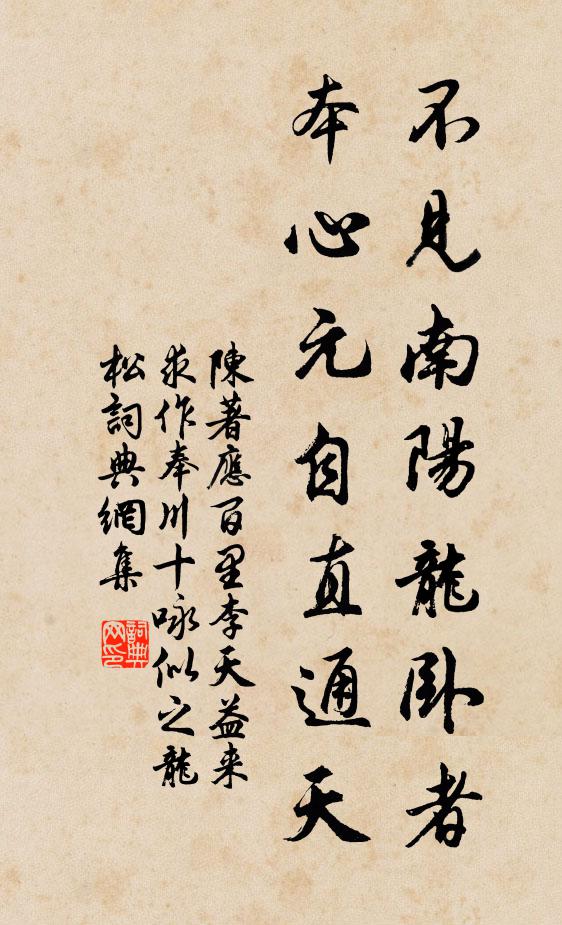 不見南陽龍卧者
本心元自直通天
陳著應百里李天益来
求作奉川十咏似之龍
松詞典網集
詞典網印